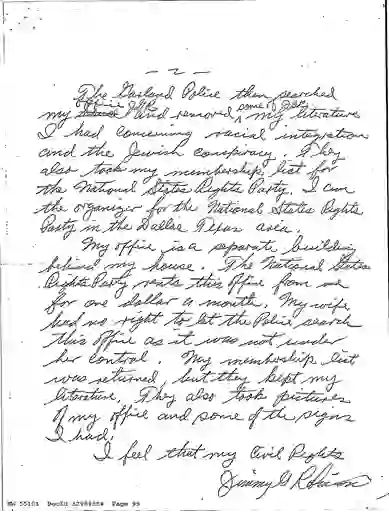 — 2 —
The Garland Police then searched
my office JGR and removed some of JGR my literature
I had concerning racial integration
and the Jewish conspiracy. They
also took my membership list for
the National States Rights Party. I am
the organizer for the National States Rights
Party in the Dallas Texas area.
My office is a separate building
behind my house. The National States
Rights Party rents this office from me
for one dollar a month. My wife
had no right to let the Police search
this office as it was not under
her control. My membership list
was returned, but they kept my
literature. They also took pictures
of my office and some of the signs
I had.
I feel that my Civil Rights
Jimmy G Robinson
NW 55101 DocId:32989584 Page 99